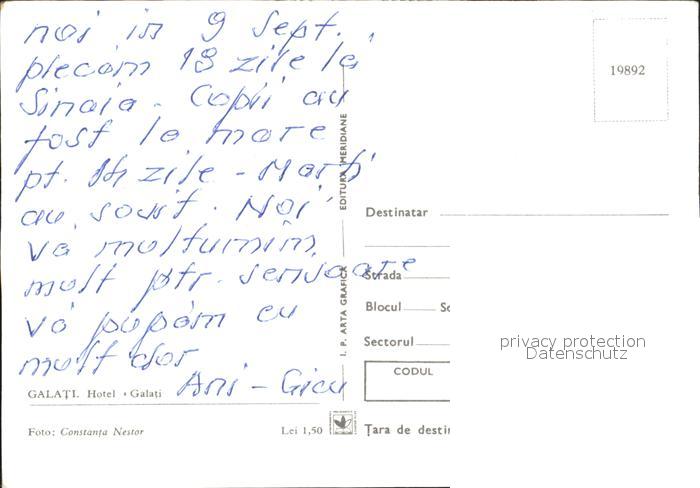 noi in 9 sept.
plecăm 18 zile la
Sinaia. Copii au
fost la mare
pt. 14 zile - Marți
au sosit. Noi
vă mulțumim
mult ptr. scrisoare
vă pupăm cu
mult dor
Ani - Gicu
GALAȚI. Hotel • Galați
Foto: Constanța Nestor
Lei 1,50
I. P. ARTA GRAFICĂ
EDITURA MERIDIANE
19892
Destinatar
Strada
Blocul Sc
Sectorul
CODUL
Țara de destin
privacy protection
Datenschutz